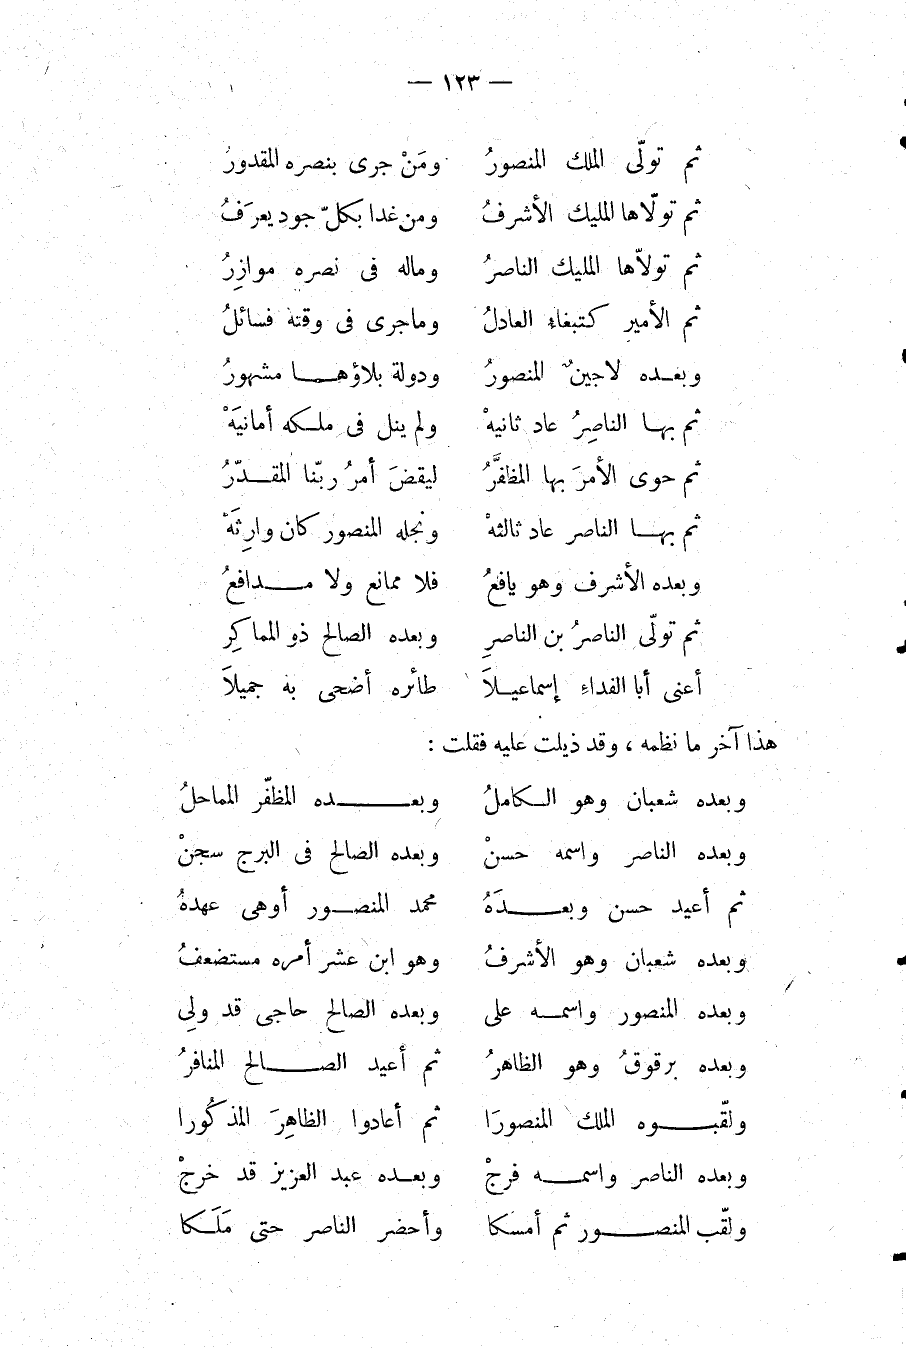 — ١٢٣ —
ثم تولّى الملك المنصورُ ومَنْ جرى بنصره المقدورُ
ثم تولّاها المليك الأشرفُ ومن غدا بكلّ جود يعرَفُ
ثم تولاّها المليك الناصرُ وماله فى نصره موازِرُ
ثم الأمير كتبغاء العادلُ وماجرى فى وقته فسائلُ
وبعده لاجينٌ المنصورُ ودولة بلاؤها مشهورُ
ثم بها الناصِرُ عاد ثانيهْ ولم ينل فى ملكه أمانيَهْ
ثم حوى الأمرَ بها المظفَّرُ ليقضَ أمرُ ربّنا المقدّرُ
ثم بها الناصر عاد ثالثهْ ونجله المنصور كان وارِثَهْ
وبعده الأشرف وهو يافعُ فلا ممانع ولا مدافعُ
ثم تولّى الناصرُ بن الناصرِ وبعده الصالح ذو المماكِرِ
أعنى أبا الفداء إسماعيلاَ طائره أضحى به جميلاَ
هذا آخر ما نظمه ، وقد ذيلت عليه فقلت :
وبعده شعبان وهو الكاملُ وبعده المظفّر المماحلُ
وبعده الناصر واسمه حسنْ وبعده الصالح فى البرج سجنْ
ثم أعيد حسن وبعدَهُ محمد المنصور أوهى عهدهُ
وبعده شعبان وهو الأشرفُ وهو ابن عشر أمره مستضعفُ
وبعده المنصور واسمه على وبعده الصالح حاجى قد ولِى
وبعده برقوقُ وهو الظاهرُ ثم أعيد الصالح المنافرُ
ولقّبوه الملك المنصورَا ثم أعادوا الظاهِرَ المذكُورا
وبعده الناصر واسمه فرجْ وبعده عبد العزيز قد خرجْ
ولقّب المنصور ثم أمسكا وأحضر الناصر حتى مَلَكا